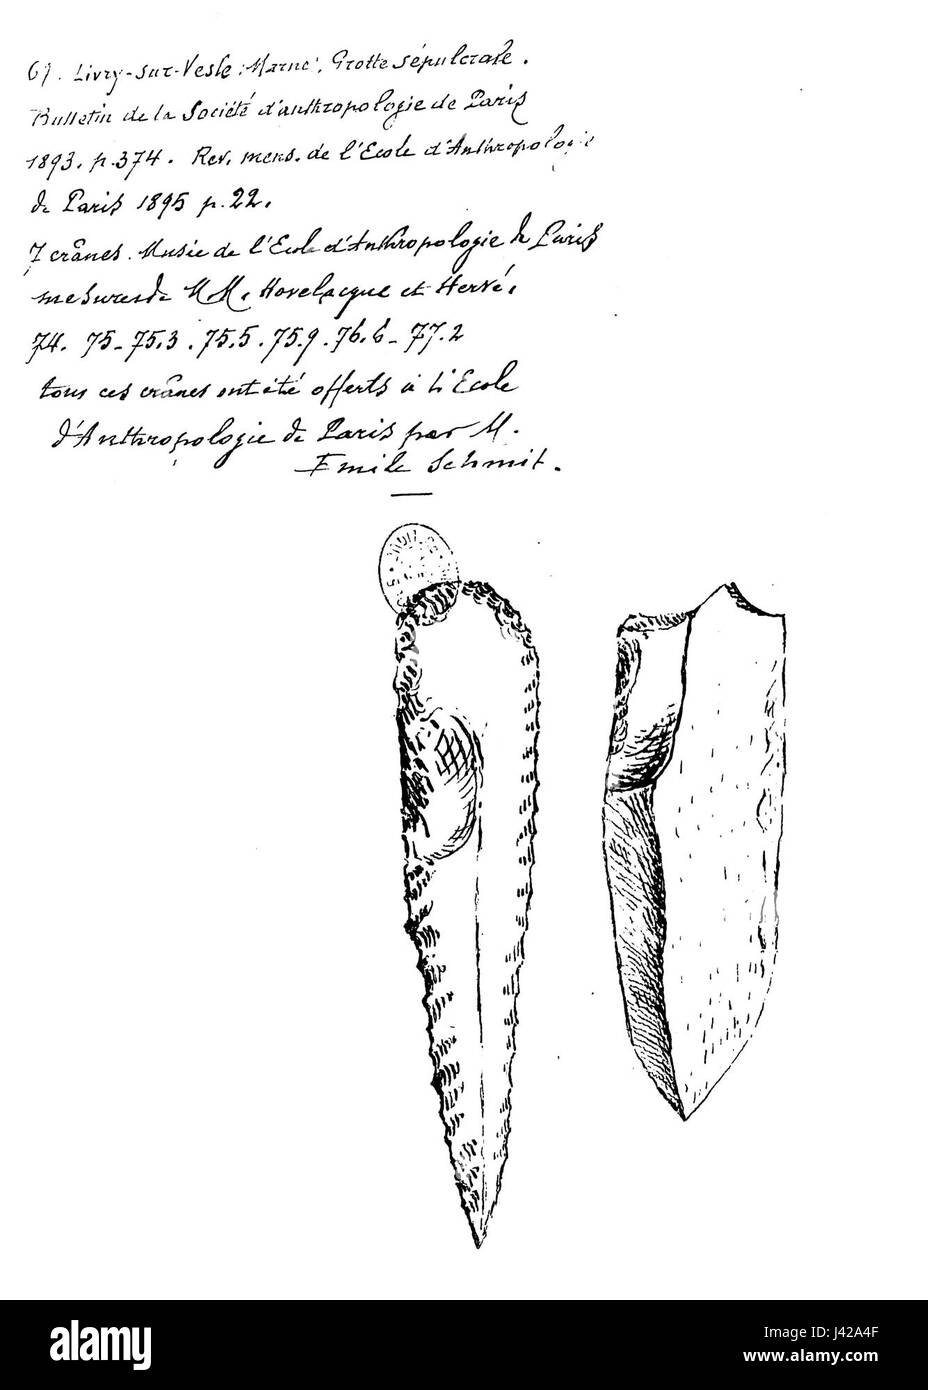 67. Livry-sur-Vesle (Marne). Grotte sépulcrale.
Bulletin de la Société d'anthropologie de Paris
1893. p.374. Rev. mens. de l'Ecole d'Anthropologie
de Paris 1895 p.22.
7 crânes. Musée de l'Ecole d'Anthropologie de Paris
mesures de MM. Hovelacque et Hervé.
74. 75-75.3.75.5.75.9.76.6-77.2
tous ces crânes ont été offerts à l'Ecole
d'Anthropologie de Paris par M.
Emile Schmit.
alamy
Image ID: J42A4F
www.alamy.com